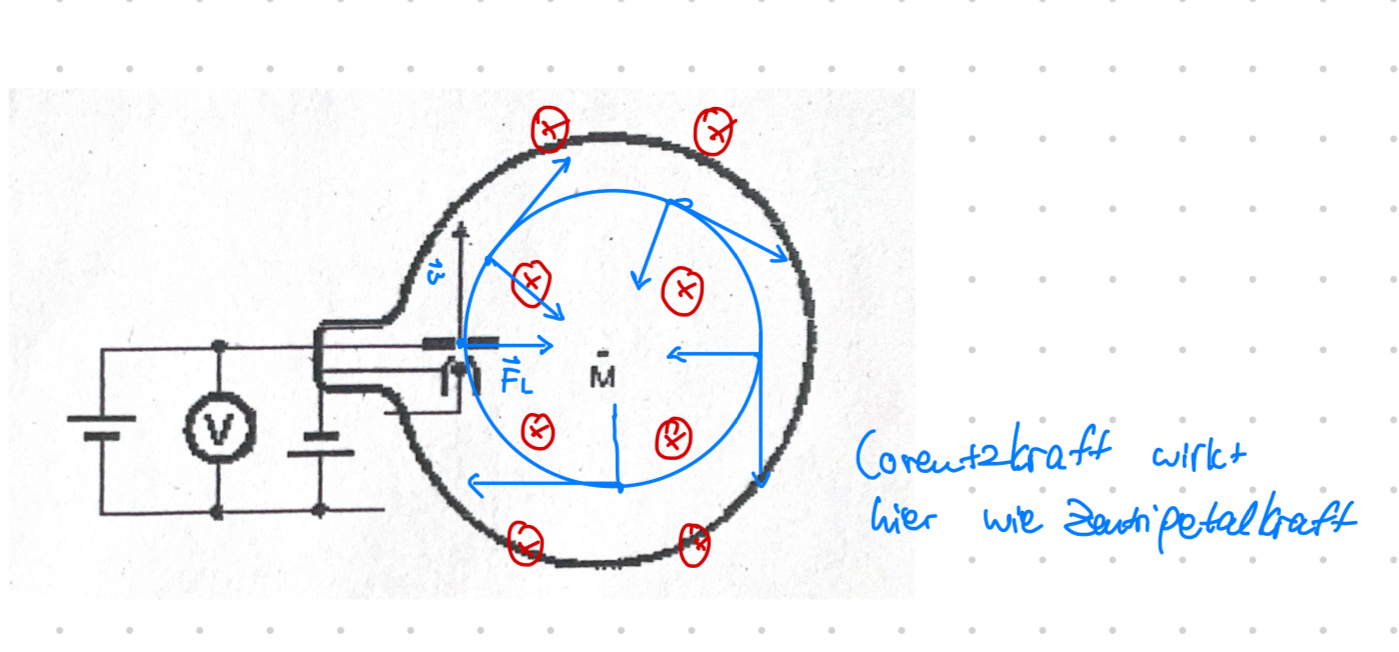 v⃗
F⃗L
M
V
Lorentzkraft wirkt
hier wie Zentripetalkraft